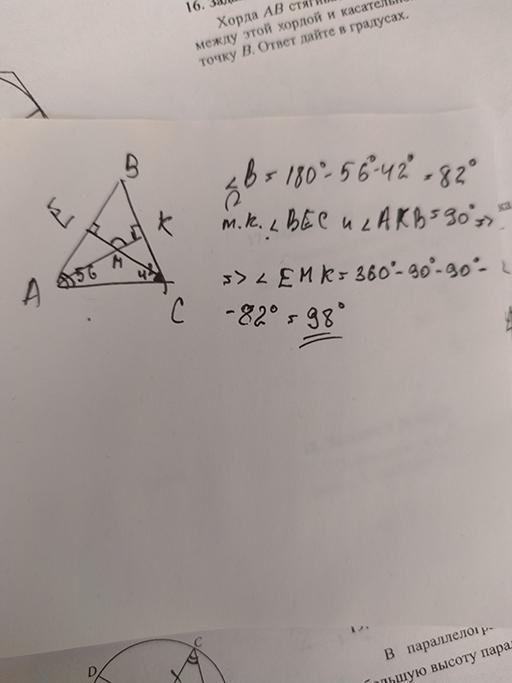 16.
Хорда AB
между этой хордой и касательной
точку B. Ответ дайте в градусах.
B
E
K
M
A
56
42°
C
∠B = 180° - 56° - 42° = 82°
т.к. ∠BEC и ∠AKB = 90° =>
=> ∠EMK = 360° - 90° - 90° -
- 82° = 98°
C
D
В параллелогр
большую высоту пара